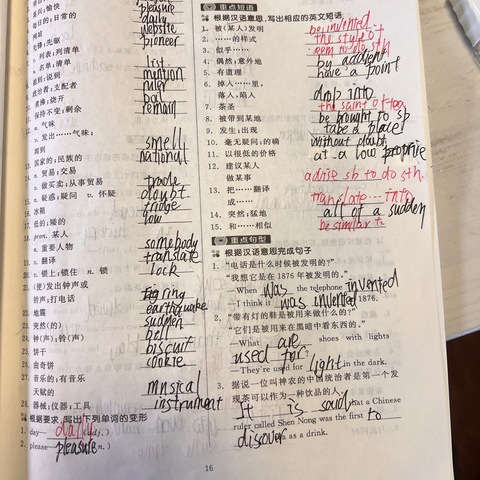 pleasure
daily
website
pioneer
n. 先锋;先驱
v. 列表;列清单 list
n. 名单;清单
提到;说到 mention
统治者;支配者 ruler
煮沸;烧开 boil
保持不变;剩余 remain
n. 气味
v. 发出……气味;
闻到 smell
国家的;民族的 national
n. 贸易;交易
v. 做买卖;从事贸易 trade
n. 疑惑;疑问 v. 怀疑 doubt
冰箱 fridge
低的;矮的 low
pron. 某人
n. 重要人物 somebody
v. 翻译 translate
v. 锁上;锁住 n. 锁 lock
(使)发出钟声或
铃声;打电话 ring
地震 earthquake
突然(的) sudden
钟(声);铃(声) bell
饼干 biscuit
曲奇饼 cookie
音乐的;有音乐
天赋的 musical
器械;仪器;工具 instrument
根据要求,写出下列单词的变形
1. day— daily (adj.)
2. please— pleasure (n.)
重点短语
根据汉语意思,写出相应的英文短语
1. 被(某人)发明 be invented
2. ……的样式 the style of
3. 似乎…… seem to do sth
4. 偶然;意外地 by accident
5. 有道理 have a point
6. 掉入……里,
落入,陷入 drop into
7. 茶圣 the saint of tea
8. 被带到某地 be brought to sp
9. 发生;出现 take a place
10. 毫无疑问;的确 without doubt
11. 以很低的价格 at a low proprise
12. 建议某人
做某事 advise sb to do sth
13. 把……翻译
成…… translate…into
14. 突然;猛地 all of a sudden
15. 和……相似 be similar to
重点句型
根据汉语意思完成句子
1. “电话是什么时候被发明的?”
“我想它是在 1876 年被发明的。”
—When was the telephone invented
—I think it was invented 1876.
2. “带有灯的鞋是被用来做什么的?”
“它们是被用来在黑暗中看东西的。”
—What are shoes with lights
used for
—They're used for light in the dark.
3. 据说一位叫神农的中国统治者是第一个发
现茶可以作为一种饮品的人。
It is said that a Chinese
ruler called Shen Nong was the first to
discover as a drink.
16